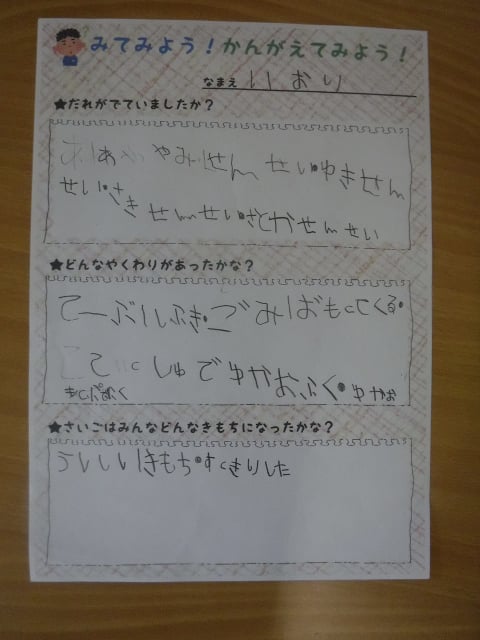 みてみよう！かんがえてみよう！
なまえ いおり
★だれがでていましたか？
やみせん せい・ゆきせん
せい・さき せんせい・さとかせんせい
★どんなやくわりがあったかな？
てーぶるふき・ごみばもってくる・
てぃしゅでゆかおふく・ゆかお
★さいごはみんなどんなきもちになったかな？
うれしいきもち・すっきりした